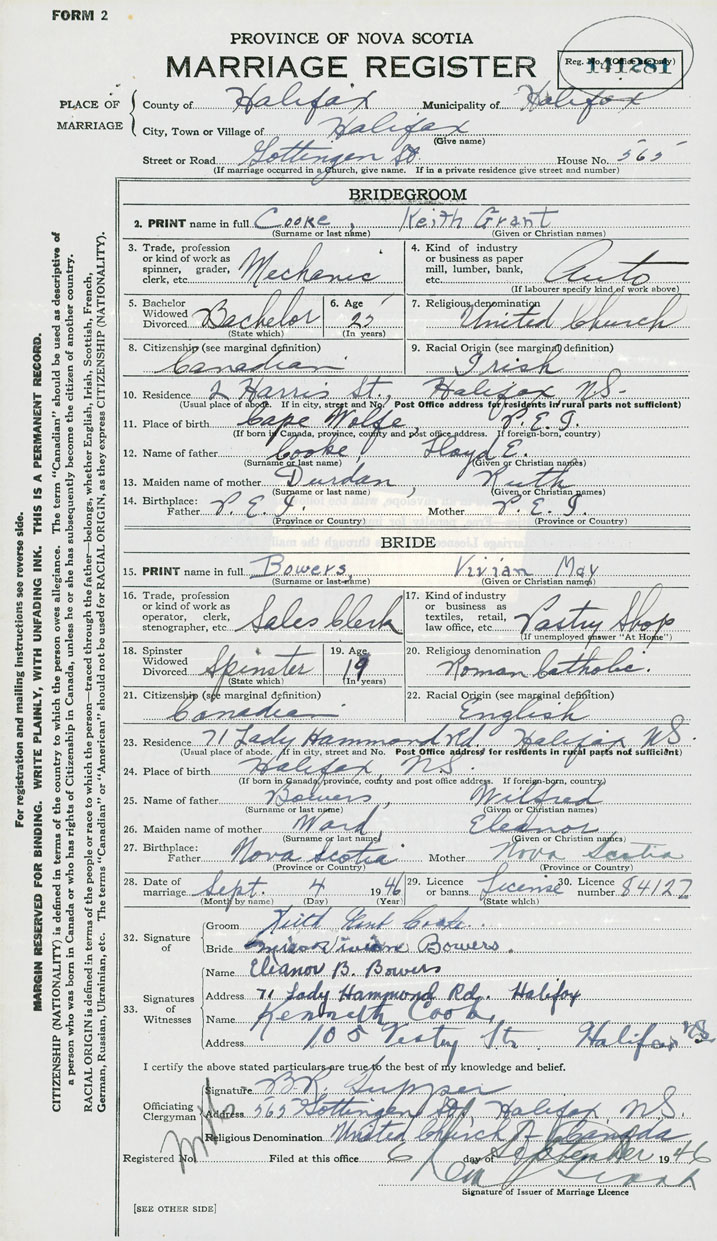 FORM 2
PROVINCE OF NOVA SCOTIA
MARRIAGE REGISTER
Reg. No. (Office use only)
141281
PLACE OF MARRIAGE
County of Halifax Municipality of Halifax
City, Town or Village of Halifax
(Give name)
Street or Road Gottingen St. House No. 565
(If marriage occurred in a Church, give name. If in a private residence give street and number)
BRIDEGROOM
2. PRINT name in full Cooke, Keith Grant
(Surname or last name) (Given or Christian names)
3. Trade, profession or kind of work as spinner, grader, clerk, etc. Mechanic
4. Kind of industry or business as paper mill, lumber, bank, etc. Auto
(If labourer specify kind of work above)
5. Bachelor Widowed Divorced Bachelor
(State which)
6. Age 25
(In years)
7. Religious denomination
United Church
8. Citizenship (see marginal definition)
Canadian
9. Racial Origin (see marginal definition)
Irish
10. Residence 2 Harris St., Halifax N.S.
(Usual place of abode. If in city, street and No. Post Office address for residents in rural parts not sufficient)
11. Place of birth Cape Wolfe, P.E.I.
(If born in Canada, province, county and post office address. If foreign-born, country)
12. Name of father Cooke, Lloyd E.
(Surname or last name) (Given or Christian names)
13. Maiden name of mother Durdan, Ruth
(Surname or last name) (Given or Christian names)
14. Birthplace: Father P.E.I. Mother P.E.I.
(Province or Country) (Province or Country)
BRIDE
15. PRINT name in full Bowers, Vivian May
(Surname or last name) (Given or Christian names)
16. Trade, profession or kind of work as operator, clerk, stenographer, etc. Sales Clerk
17. Kind of industry or business as textiles, retail, law office, etc. Pastry Shop
(If unemployed answer "At Home")
18. Spinster Widowed Divorced Spinster
(State which)
19. Age 19
(In years)
20. Religious denomination
Roman Catholic.
21. Citizenship (see marginal definition)
Canadian
22. Racial Origin (see marginal definition)
English
23. Residence 71 Lady Hammond Rd. Halifax N.S.
(Usual place of abode. If in city, street and No. Post Office address for residents in rural parts not sufficient)
24. Place of birth Halifax, N.S.
(If born in Canada, province, county and post office address. If foreign-born, country)
25. Name of father Bowers, Wilfred
(Surname or last name) (Given or Christian names)
26. Maiden name of mother Ward Eleanor
(Surname or last name) (Given or Christian names)
27. Birthplace: Father Nova Scotia Mother Nova Scotia
(Province or Country) (Province or Country)
28. Date of marriage Sept. 4 1946
(Month by name) (Day) (Year)
29. Licence or banns License
(State which)
30. Licence number 84127
32. Signature of
Groom Keith Grant Cooke.
Bride Miss Vivian Bowers.
33. Signatures of Witnesses
Name Eleanor B. Bowers
Address 71 Lady Hammond Rd. Halifax
Name Kenneth Cook
Address 105 Halifax N.S.
I certify the above stated particulars are true to the best of my knowledge and belief.
Officiating Clergyman
Signature
Address 565 Gottingen St., Halifax, N.S.
Religious Denomination United Church of Canada
Registered No. Filed at this office 6 day of September 1946
Signature of Issuer of Marriage Licence
[SEE OTHER SIDE]
For registration and mailing instructions see reverse side.
MARGIN RESERVED FOR BINDING. WRITE PLAINLY, WITH UNFADING INK. THIS IS A PERMANENT RECORD.
CITIZENSHIP (NATIONALITY) is defined in terms of the country to which the person owes allegiance. The term "Canadian" should be used as descriptive of
a person who was born in Canada or who has rights of Citizenship in Canada, unless he or she has subsequently become the citizen of another country.
RACIAL ORIGIN is defined in terms of the people or race to which the person—traced through the father—belongs, whether English, Irish, Scottish, French,
German, Russian, Ukrainian, etc. The terms "Canadian" or "American" should not be used for RACIAL ORIGIN, as they express CITIZENSHIP (NATIONALITY).